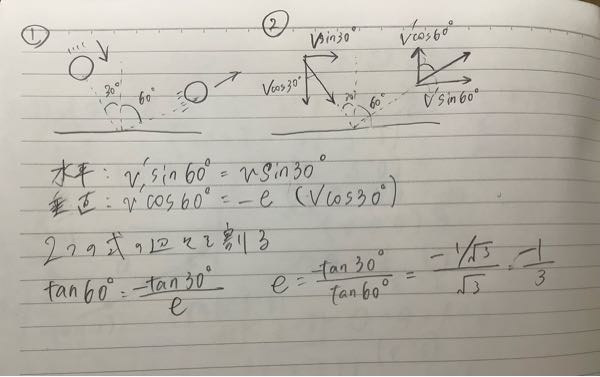 ①
30°
60°
②
Vsin30°
Vcos30°
30°
60°
V'cos60°
V'sin60°
水平: v'sin60° = vsin30°
垂直: v'cos60° = -e (Vcos30°)
2つの式の辺々を割る
tan60° = -tan30°/e
e = -tan30°/tan60° = -1/√3/√3 = -1/3